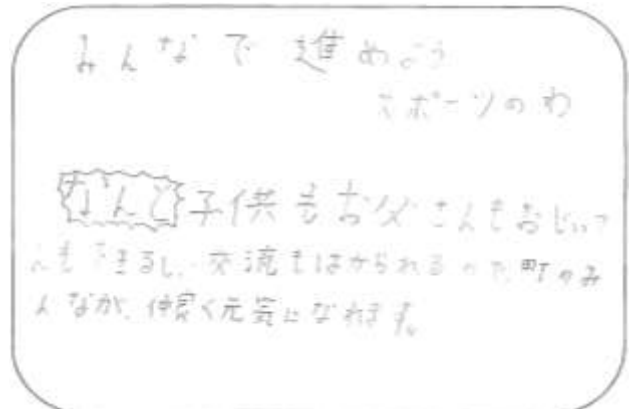 みんなで進めよう
スポーツのわ
なんと子供もお父さんもおじいさ
んもできるし、交流もはかられるので、町のみ
んなが、仲良く元気になれます。